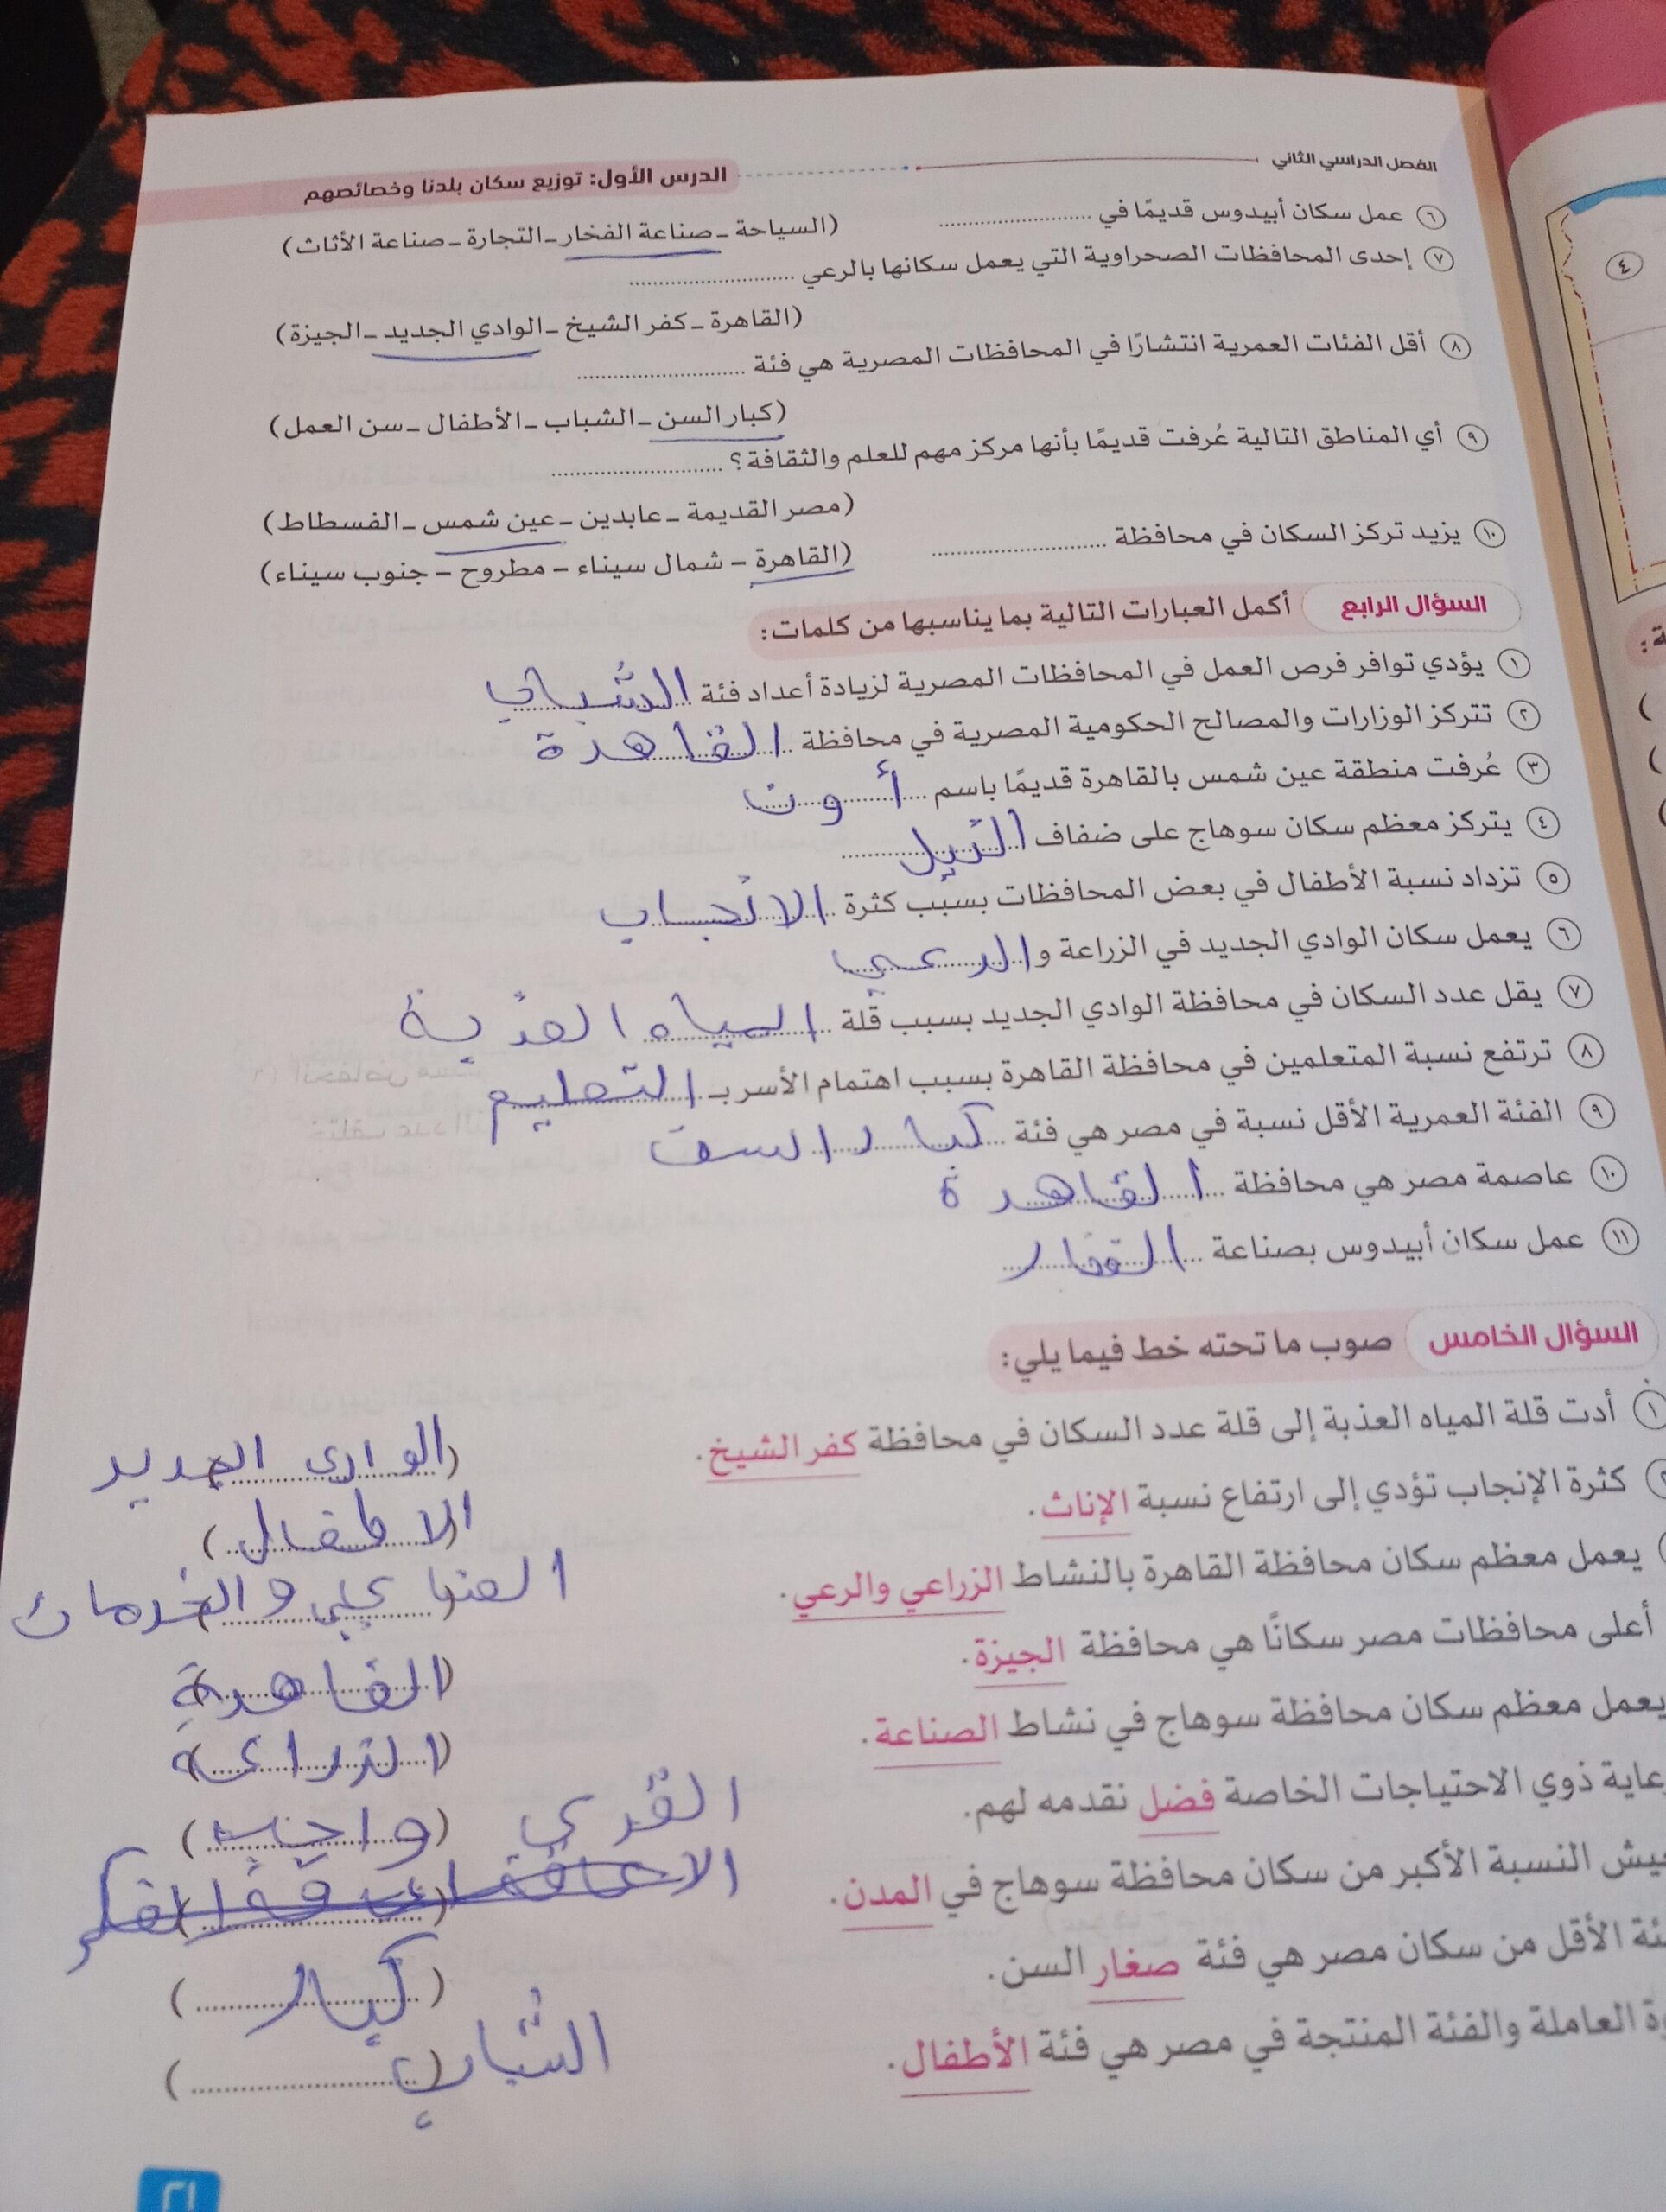 الفصل الدراسي الثاني
الدرس الأول: توزيع سكان بلدنا وخصائصهم
٦ عمل سكان أبيدوس قديمًا في ........................ (السياحة – صناعة الفخار – التجارة – صناعة الأثاث)
٧ إحدى المحافظات الصحراوية التي يعمل سكانها بالرعي ........................
(القاهرة – كفر الشيخ – الوادي الجديد – الجيزة)
٨ أقل الفئات العمرية انتشارًا في المحافظات المصرية هي فئة ........................
(كبار السن – الشباب – الأطفال – سن العمل)
٩ أي المناطق التالية عُرفت قديمًا بأنها مركز مهم للعلم والثقافة؟ ........................
(مصر القديمة – عابدين – عين شمس – الفسطاط)
١٠ يزيد تركز السكان في محافظة ........................ (القاهرة – شمال سيناء – مطروح – جنوب سيناء)
السؤال الرابع أكمل العبارات التالية بما يناسبها من كلمات:
١ يؤدي توافر فرص العمل في المحافظات المصرية لزيادة أعداد فئة الشباب
٢ تتركز الوزارات والمصالح الحكومية المصرية في محافظة القاهرة
٣ عُرفت منطقة عين شمس بالقاهرة قديمًا باسم أون
٤ يتركز معظم سكان سوهاج على ضفاف النيل
٥ تزداد نسبة الأطفال في بعض المحافظات بسبب كثرة الانجاب
٦ يعمل سكان الوادي الجديد في الزراعة و الرعي
٧ يقل عدد السكان في محافظة الوادي الجديد بسبب قلة المياه العذبة
٨ ترتفع نسبة المتعلمين في محافظة القاهرة بسبب اهتمام الأسر بـ التعليم
٩ الفئة العمرية الأقل نسبة في مصر هي فئة كبار السن
١٠ عاصمة مصر هي محافظة القاهرة
١١ عمل سكان أبيدوس بصناعة الفخار
السؤال الخامس صوب ما تحته خط فيما يلي:
١ أدت قلة المياه العذبة إلى قلة عدد السكان في محافظة كفر الشيخ. (الوادى الجديد)
كثرة الإنجاب تؤدي إلى ارتفاع نسبة الإناث. (الاطفال)
يعمل معظم سكان محافظة القاهرة بالنشاط الزراعي والرعي. (الصناعي والخدمات)
أعلى محافظات مصر سكانًا هي محافظة الجيزة. (القاهرة)
يعمل معظم سكان محافظة سوهاج في نشاط الصناعة. (الزراعة)
عاية ذوي الاحتياجات الخاصة فضل نقدمه لهم. (واجب)
القرى
يش النسبة الأكبر من سكان محافظة سوهاج في المدن.
ئة الأقل من سكان مصر هي فئة صغار السن. (كبار)
ة العاملة والفئة المنتجة في مصر هي فئة الأطفال. (الشباب)
٤